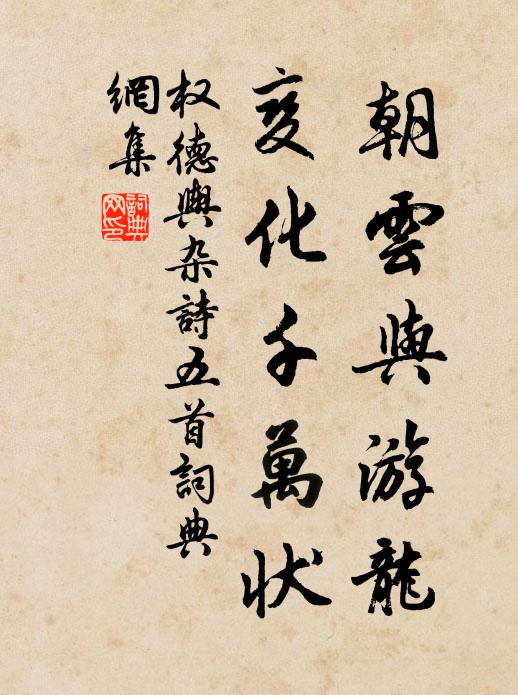 朝雲與游龍
變化千萬状
权德輿杂詩五首詞典
網集
詞典網印